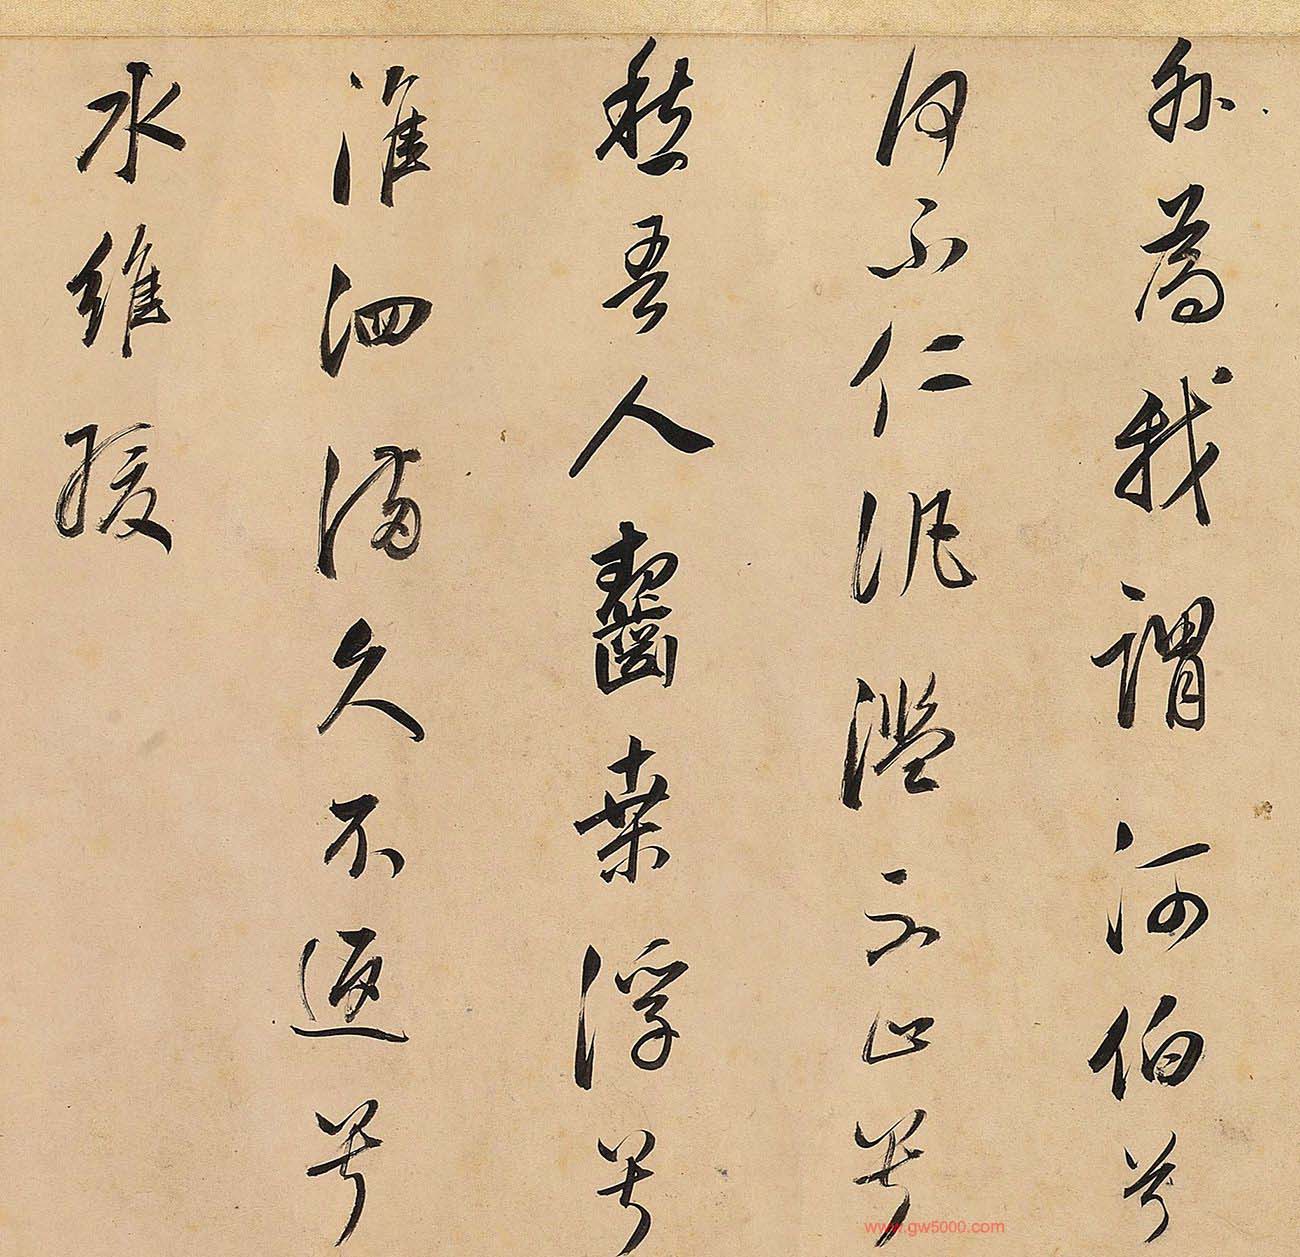 外為我謂河伯兮
何不仁泛濫不止兮
愁吾人齧桑浮兮
淮泗滿久不返兮
水維緩
www.gw5000.com